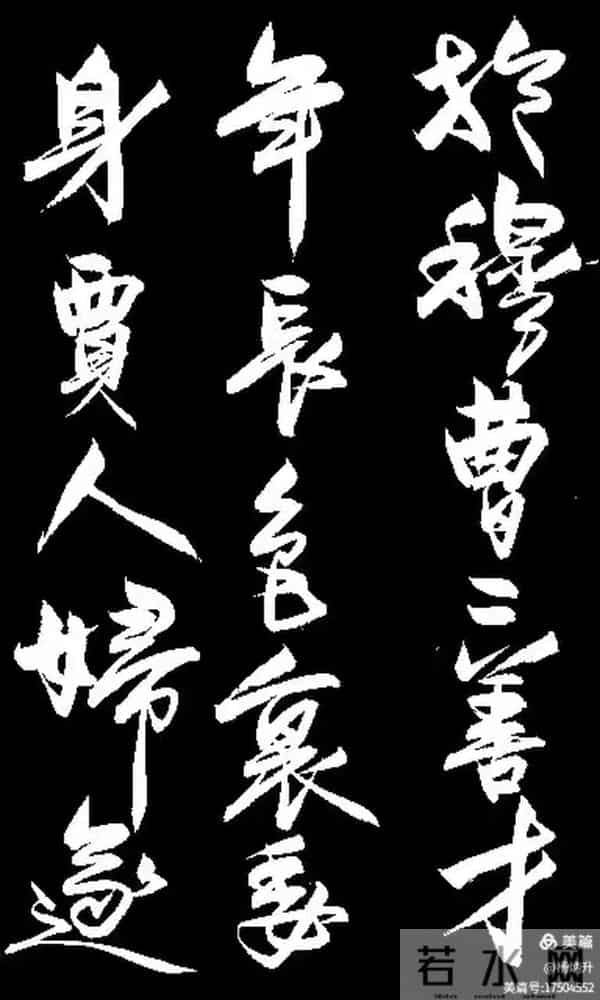 於穆曹二善才
年長色衰委
身賈人婦遂
美篇
若水网
美篇号:17504552